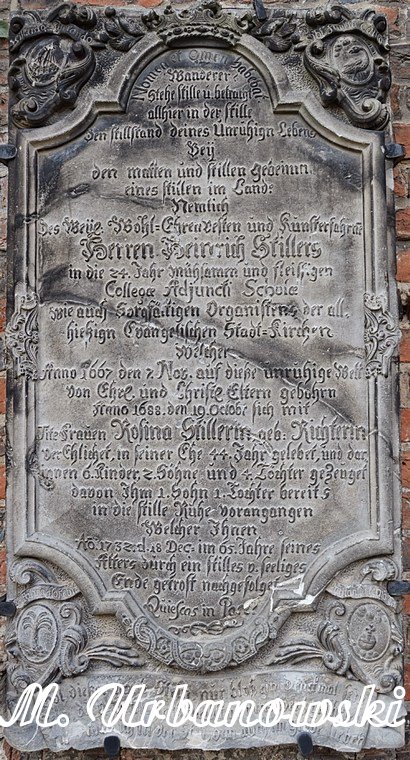 Nomen et Omen habebat
Wanderer
Stehe stille u betrachte
allhier in der stille
den stillstand deines Unruhign Lebens
Beÿ
den matten und stillen gebeinen
eines stillen im Land:
Nemlich
des Weÿl: Wohl-Ehrenvesten und Kunsterfahrnē
Herren Heinrich Stillers
in die 24. Jahr mühsamen und fleißigen
Collegæ Adjuncti Scholæ
wie auch Sorgfältigen Organistens der all
hießign Evangelischen Stadt-Kirchen
Welcher
Anno 1667 den 7. Nov. auf dieße unruhige Welt
von Ehrl. und Christl Eltern gebohrn
Anno 1688. den 19. Octobr sich mit
Tit: Frauen Rosina Stillerin geb. Richterin
verEhlichet, in seiner Ehe 44. Jahr gelebet, und dar
innen 6. Kinder, 2. Söhne und 4. Töchter gezeuget
davon Ihm 1. Sohn 1. Tochter bereits
in die stille Ruhe vorangangen
Welcher Ihnen
Aō. 1732. d. 18 Dec. im 65. Jahre seines
Alters durch ein stilles u. seeliges
Ende getrost nachgefolget
Quiescas in Pace
M. Urbanowski